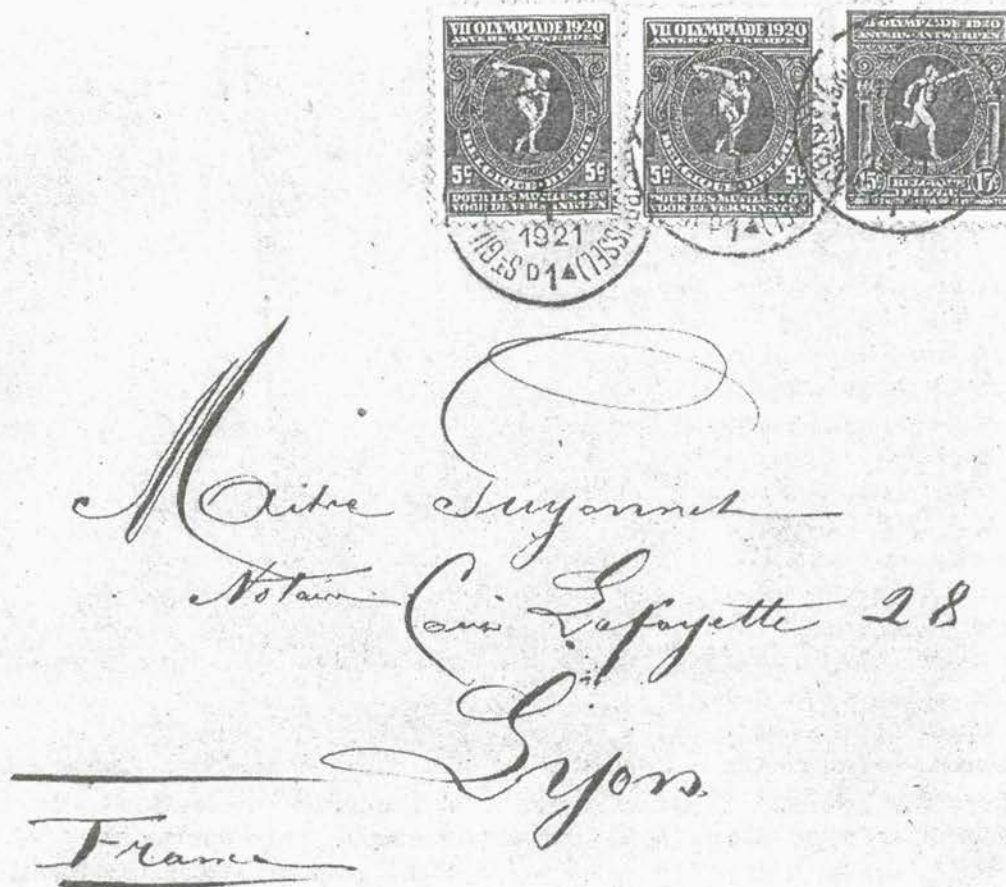 VII OLYMPIADE 1920
ANVERS-ANTWERPEN
5c 5c
BELGIQUE-BELGIË
POUR LES MUTILÉS+5c
VOOR DE VERMINKTEN
VII OLYMPIADE 1920
ANVERS-ANTWERPEN
5c 5c
BELGIQUE-BELGIË
POUR LES MUTILÉS+5c
VOOR DE VERMINKTEN
VII OLYMPIADE 1920
ANVERS-ANTWERPEN
15c 15c
BELGIQUE
BELGIË
1921
D 1
Maître Guyonnet
Notaire Cours Lafayette 28
Lyon
France